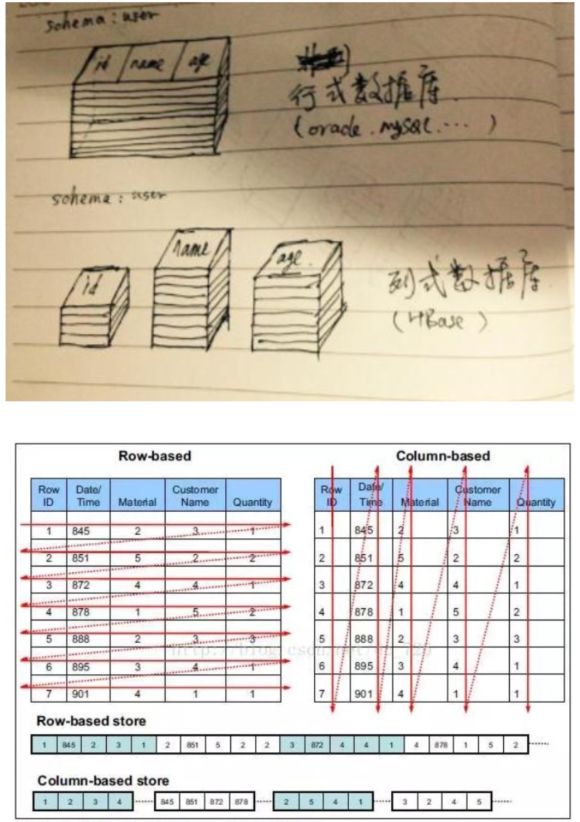 schema : user
id name age
行式数据库
(oracle . mysql . ... )
schema : user
id
name
age
列式数据库
(HBase)
Row-based
Row ID Date/Time Material Customer Name Quantity
1 845 2 3 1
2 851 5 2 2
3 872 4 4 1
4 878 1 5 2
5 888 2 3 3
6 895 3 4 1
7 901 4 1 1
Column-based
Row ID Date/Time Material Customer Name Quantity
1 845 2 3 1
2 851 5 2 2
3 872 4 4 1
4 878 1 5 2
5 888 2 3 3
6 895 3 4 1
7 901 4 1 1
Row-based store
1 845 2 3 1 2 851 5 2 2 3 872 4 4 1 4 878 1 5 2
Column-based store
1 2 3 4 845 851 872 878 2 5 4 1 3 2 4 5